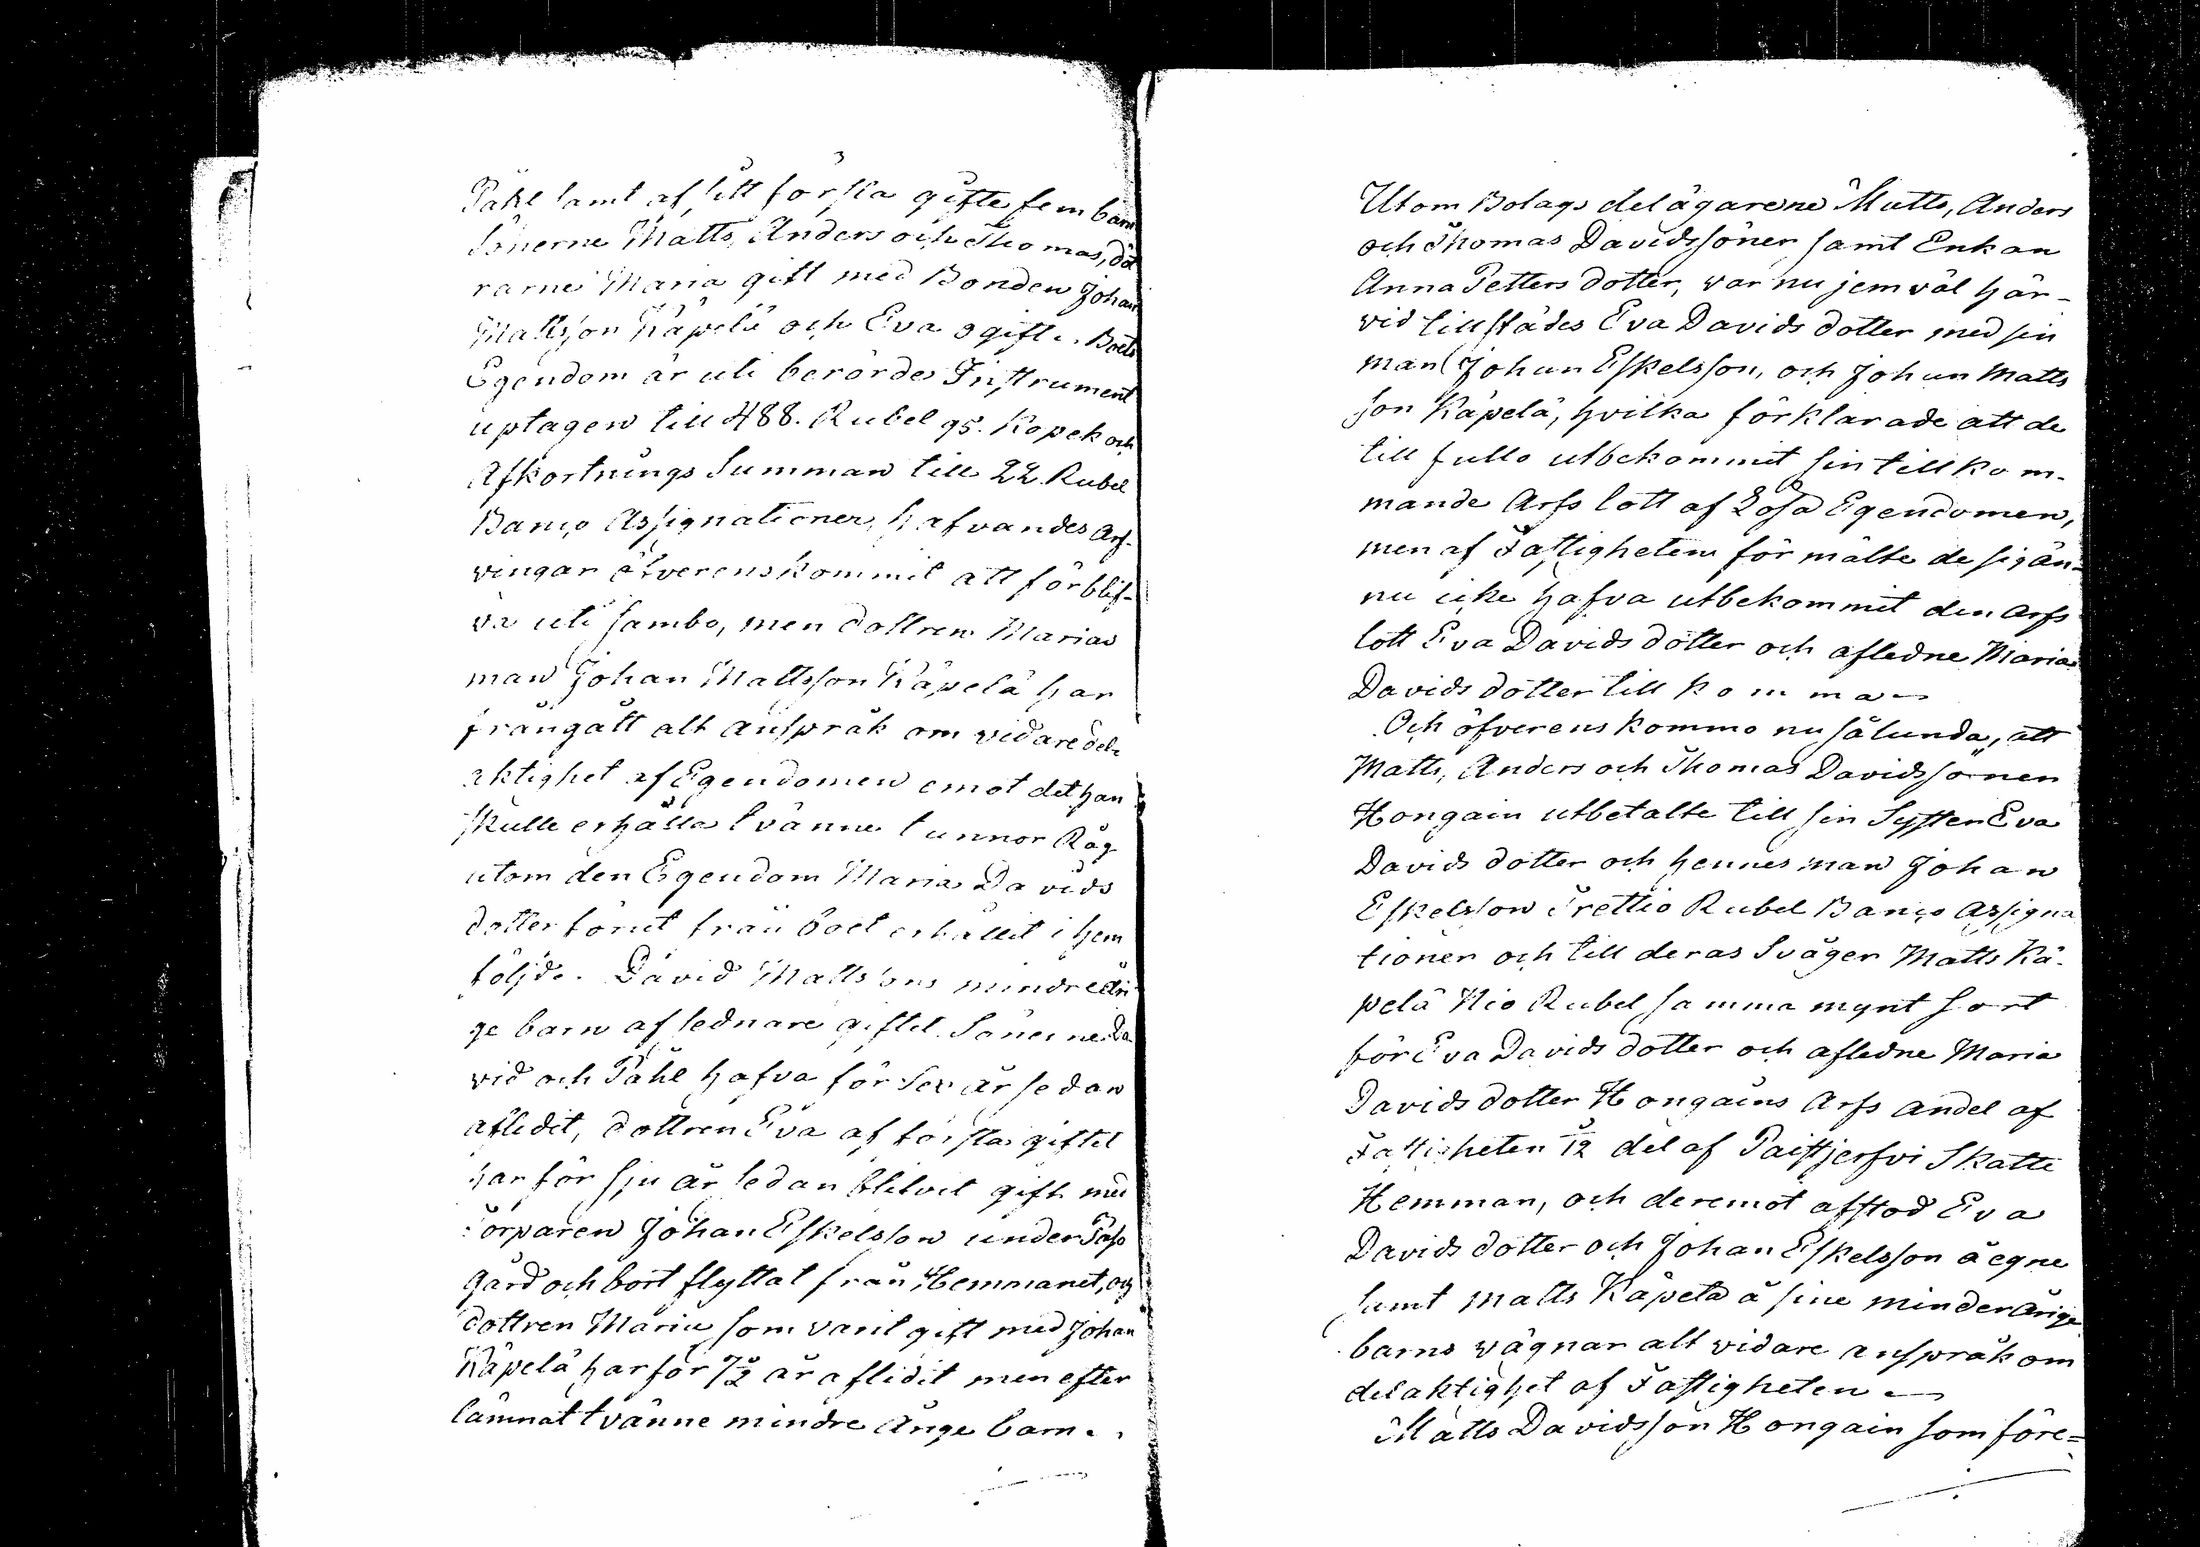 Påhl samt af sitt första gifte fem barn
Sönerne Matts, Anders och Thomas, dött
rarne Maria gift med Bonden Johan
Mattsson Käpelä och Eva ogift. Boets
Egendom är uti berörde Instrument
uptagen till 488. Rubel 95. Kopek och
Afkortnings Summan till 22. Rubel
Banco Assignationer, hafvandes Arf-
vingar öfverenskommit att förblif-
va uti sambo, men dottren Marias
man Johan Mattsson Käpelä har
frångått alt anspråk om vidare del-
aktighet af Egendomen emot det han
skulle erhålla tvänne tunnor Råg
utom den Egendom Maria Davids
dotter förut från boet erhållit i hem
följd. David Mattssons mindreåri
ge barn af sednare giftet Sönerne Da
vid och Påhl hafva för Sex år sedan
aflidit, dottren Eva af första giftet
har för sju år sedan blifvit gift med
Torparen Johan Eskelsson under Pass
gård och bort flyttat från Hemmanet, och
dottren Maria som varit gift med Johan
Käpelä har för 7½ år aflidit men efter
lämnat tvänne mindre Årige barn.
Utom Bolags delägarene Matts, Anders
och Thomas Davidssöner samt Enkan
Anna Petters dotter, var nu jemväl här-
vid tillstädes Eva Davids dotter med sin
man Johan Eskelsson, och Johan Matts
son Käpelä, hvilka förklarade att de
till fullo utbekommit sin tillkom-
mande Arfs lott af Lösa Egendomen,
men af Fastigheten förmälte de sig än-
nu icke hafva utbekommit den Arfs
lott Eva Davids dotter och afledne Maria
Davids dotter tillkomma
Och öfverenskommo nu sålunda, att
Matts, Anders och Thomas Davidssöner
Hongain utbetalte till sin Syster Eva
Davids dotter och hennes man Johan
Eskelsson Trettio Rubel Banco Assigna
tioner och till deras Svåger Matts Kä-
pelä Nio Rubel samma mynt sort
för Eva Davids dotter och afledne Maria
Davids dotter Hongains Arfs andel af
Fastigheten 1/12 del af Paistjerfvi Skatte
Hemman, och deremot afstod Eva
Davids dotter och Johan Eskelsson å egne
samt Matts Käpelä å sine minderårige
barns vägnar alt vidare anspråk om
delaktighet af Fastigheten
Matts Davidsson Hongain som före=